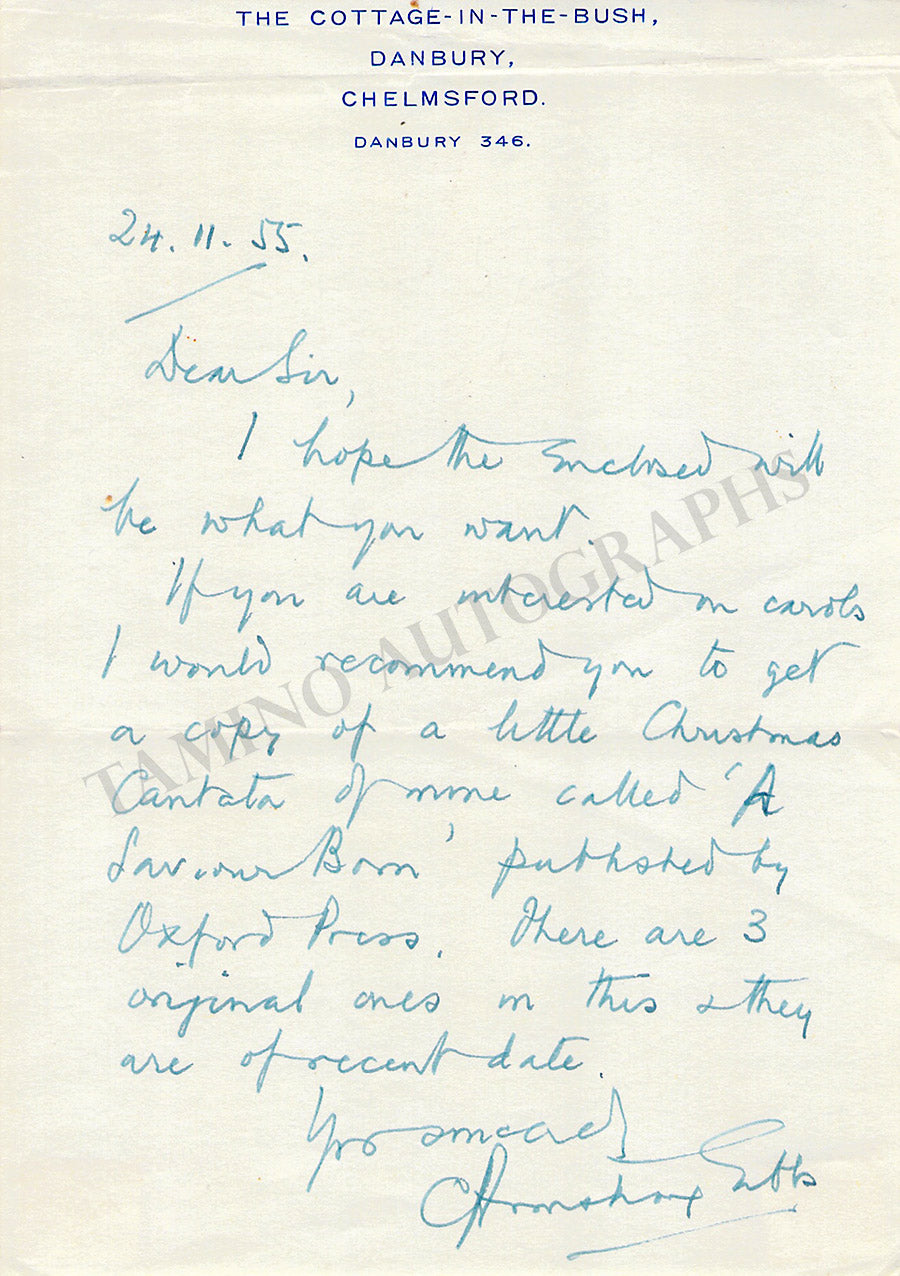 THE COTTAGE-IN-THE-BUSH,
DANBURY,
CHELMSFORD.
DANBURY 346.
24.11.55.
Dear Sir,
I hope the Enclosed will
be what you want.
If you are interested in carols
I would recommend you to get
a copy of a little Christmas
Cantata of mine called 'A
Saviour Born' published by
Oxford Press. There are 3
original ones in this & they
are of recent date.
Yrs sincerely
C Armstrong Gibbs
TAMINO AUTOGRAPHS